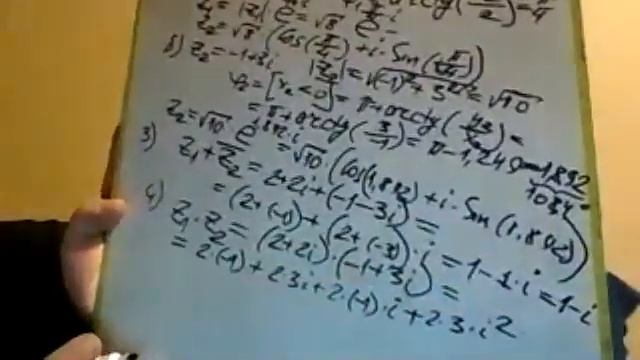 z₁ = |z₁| e = √8 e
z₂ = √8 (cos(π/4) + i · sin(π/4))
б) z₂ = -1+3i |z₂| = √(-1)² + 3² = √10
φ₂ = [x₂ < 0] = π + arctg(y₂/x₂) =
= π + arctg(3/-1) = π - 1,249 = 1,892
z₂ = √10 · e^1,892·i = √10 · (cos(1,892) + i · sin(1.892))
3) z₁ + z̅₂ = 2+2i + (-1-3i) =
= (2+(-1)) + (2+(-3)) · i = 1-1·i = 1-i
4) z₁ · z₂ = (2+2i) · (-1+3i) =
= 2·(-1) + 2·3i + 2·(-1)·i + 2·3·i²